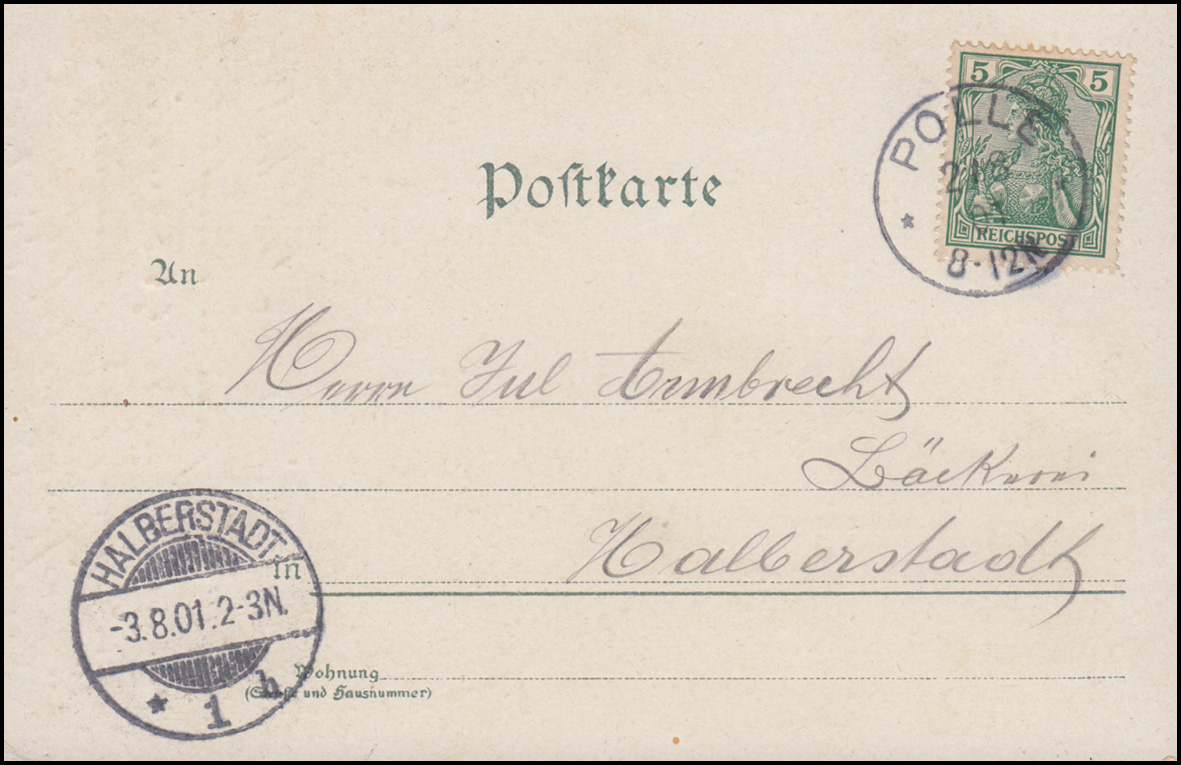 5 5
REICHSPOST
POLLE
2 / 8
01
8-12N
Postkarte
An
Herrn Jul Armbrecht
Bäckerei
Halberstadt
in
HALBERSTADT
-3.8.01.2-3N.
* 1 h
Wohnung
(Straße und Hausnummer)